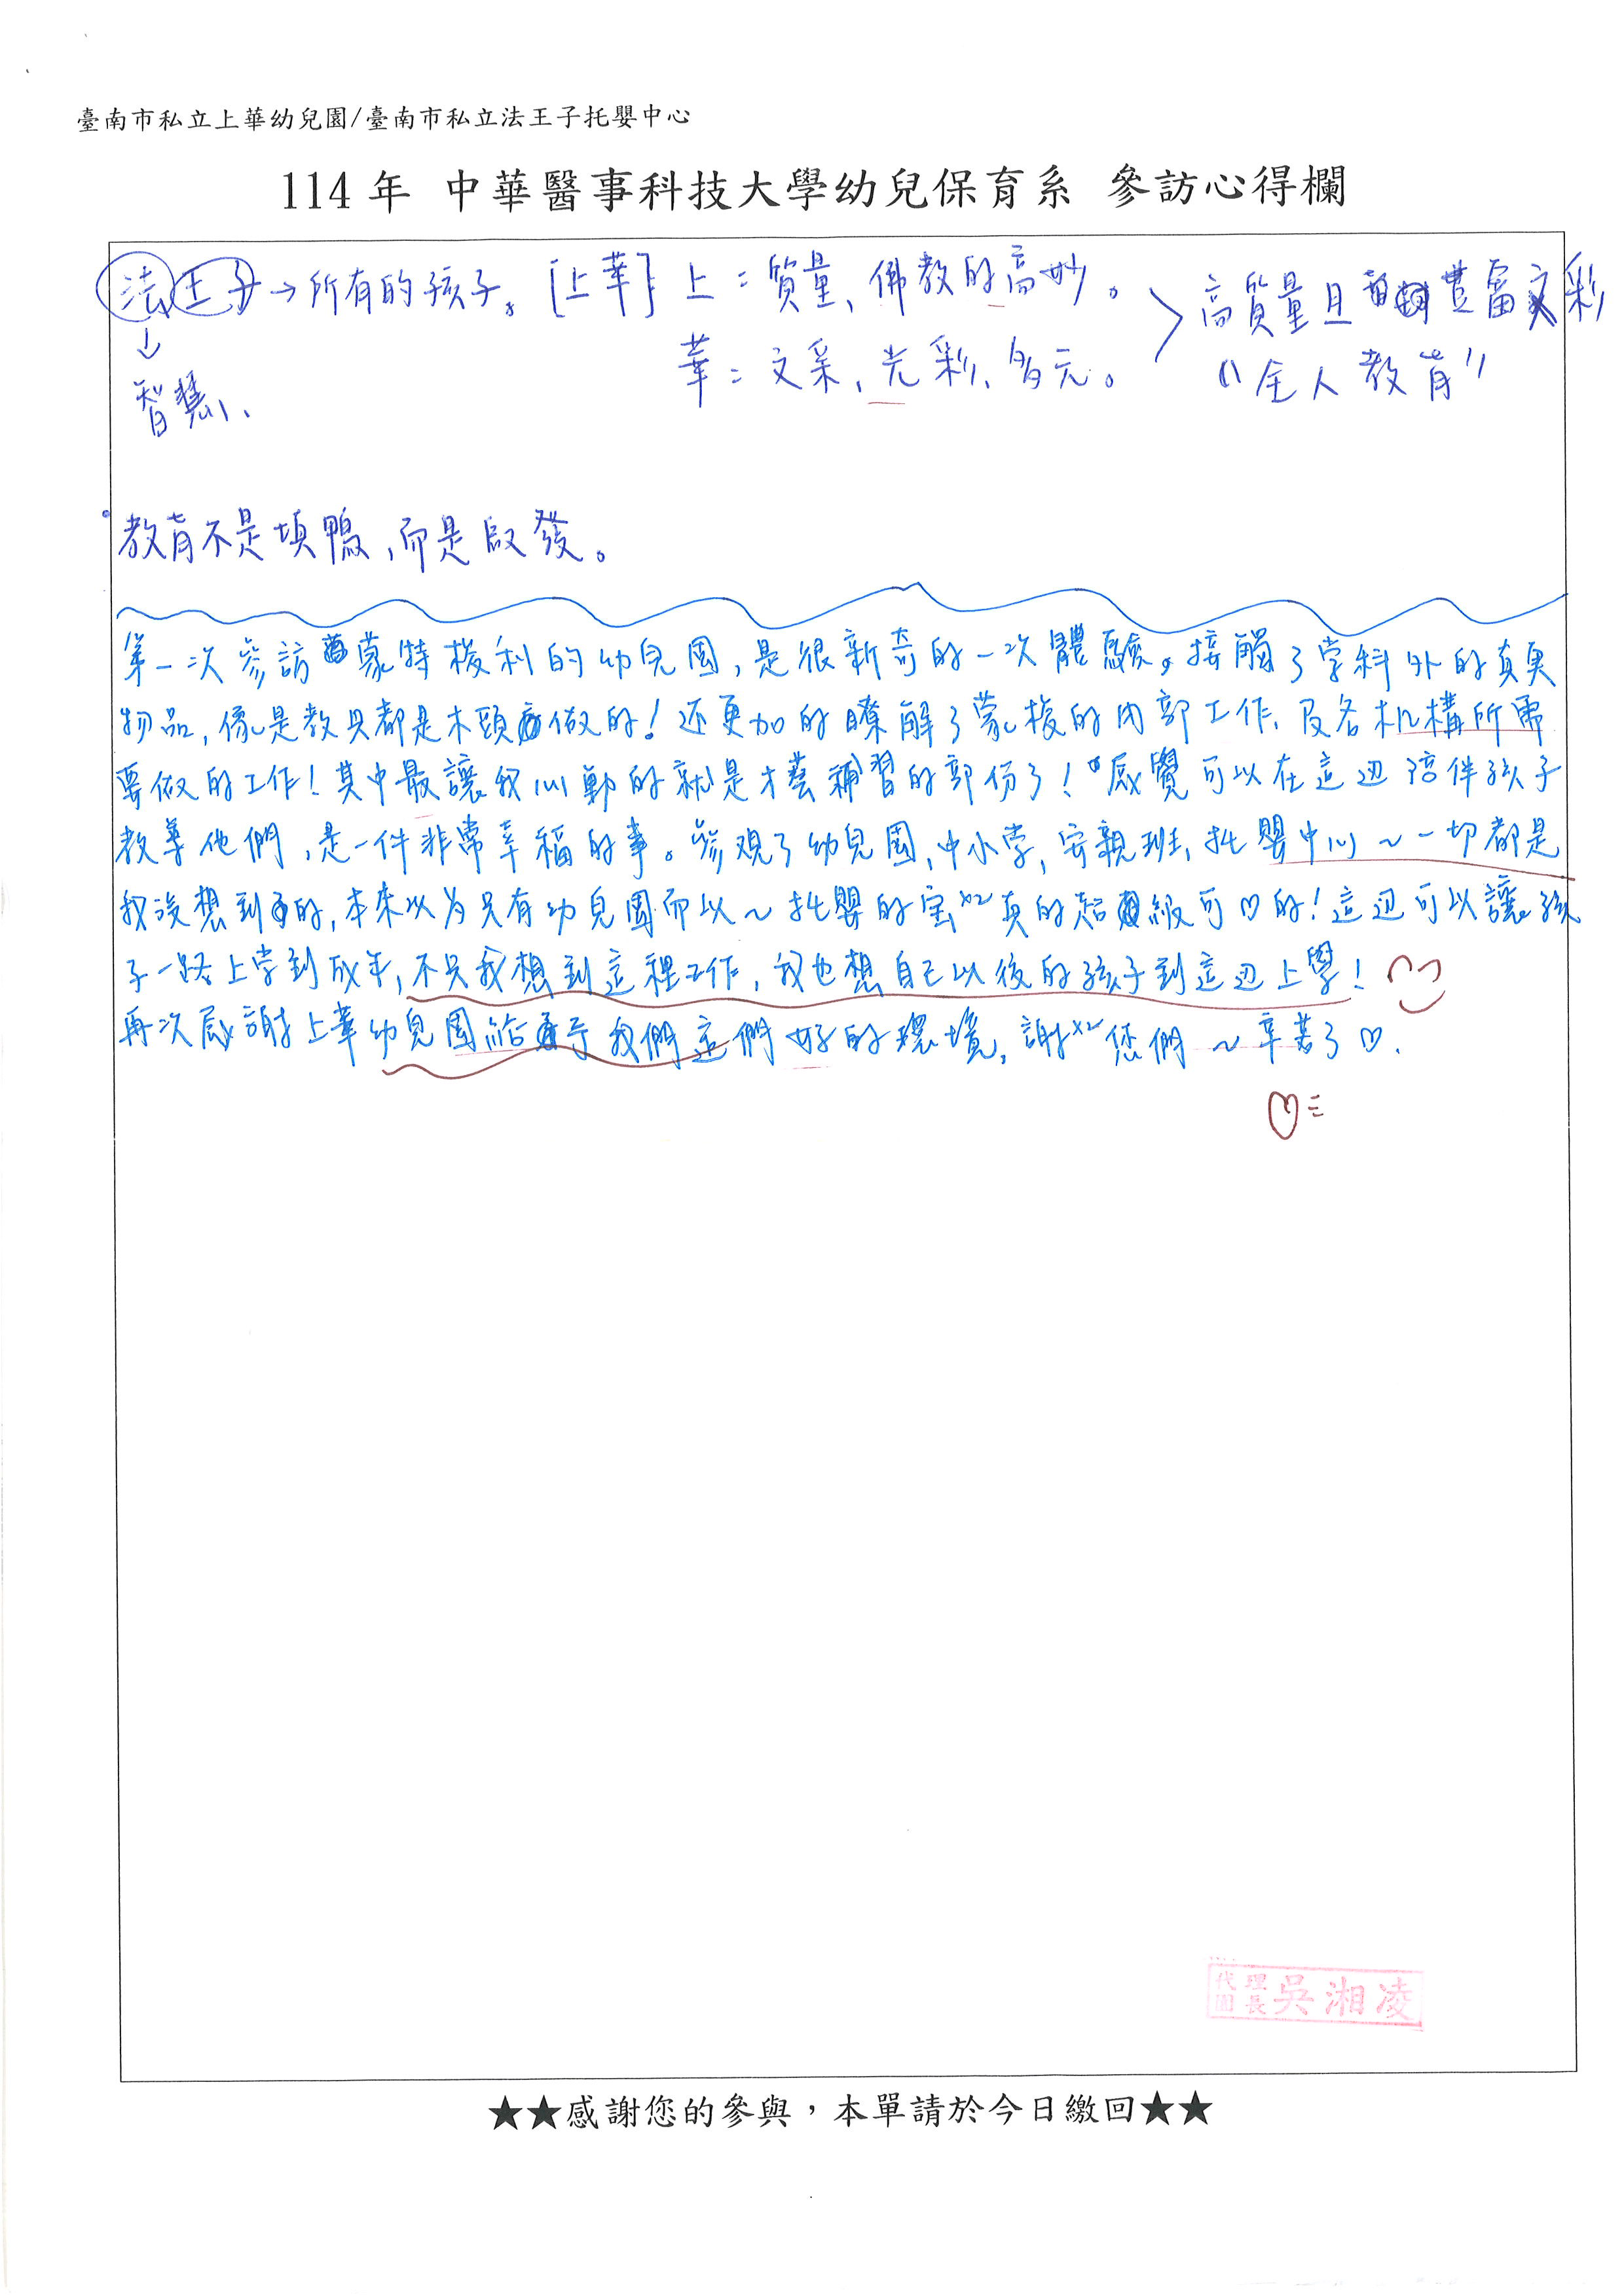 臺南市私立上華幼兒園/臺南市私立法王子托嬰中心
114年 中華醫事科技大學幼兒保育系 參訪心得欄
法王子→所有的孩子。[上華] 上:質量、佛教的高妙。 高質量且豐富文彩
↓ 華:文采、光彩、多元。 "全人教育"
智慧、
教育不是填鴨,而是啟發。
第一次參訪蒙特梭利的幼兒園,是很新奇的一次體驗。接觸了学科外的真實
物品,像是教具都是木頭做的!还更加的瞭解了蒙梭的內部工作、及各机構所需
要做的工作!其中最讓我心動的就是才藝補習的部份了!感覺可以在這边陪伴孩子
教導他們,是一件非常幸福的事。參观了幼兒園、中小学、安親班、托嬰中心~一切都是
我沒想到的,本來以为只有幼兒園而以~托嬰的宝x2真的超級可♡的!這边可以讓孩
子一路上学到成年,不只我想到這裡工作,我也想自己以後的孩子到這边上學!
再次感謝上華幼兒園給予我們這們好的環境,謝x2您們~辛苦了♡.
代理園長 吳湘凌
★★感謝您的參與,本單請於今日繳回★★